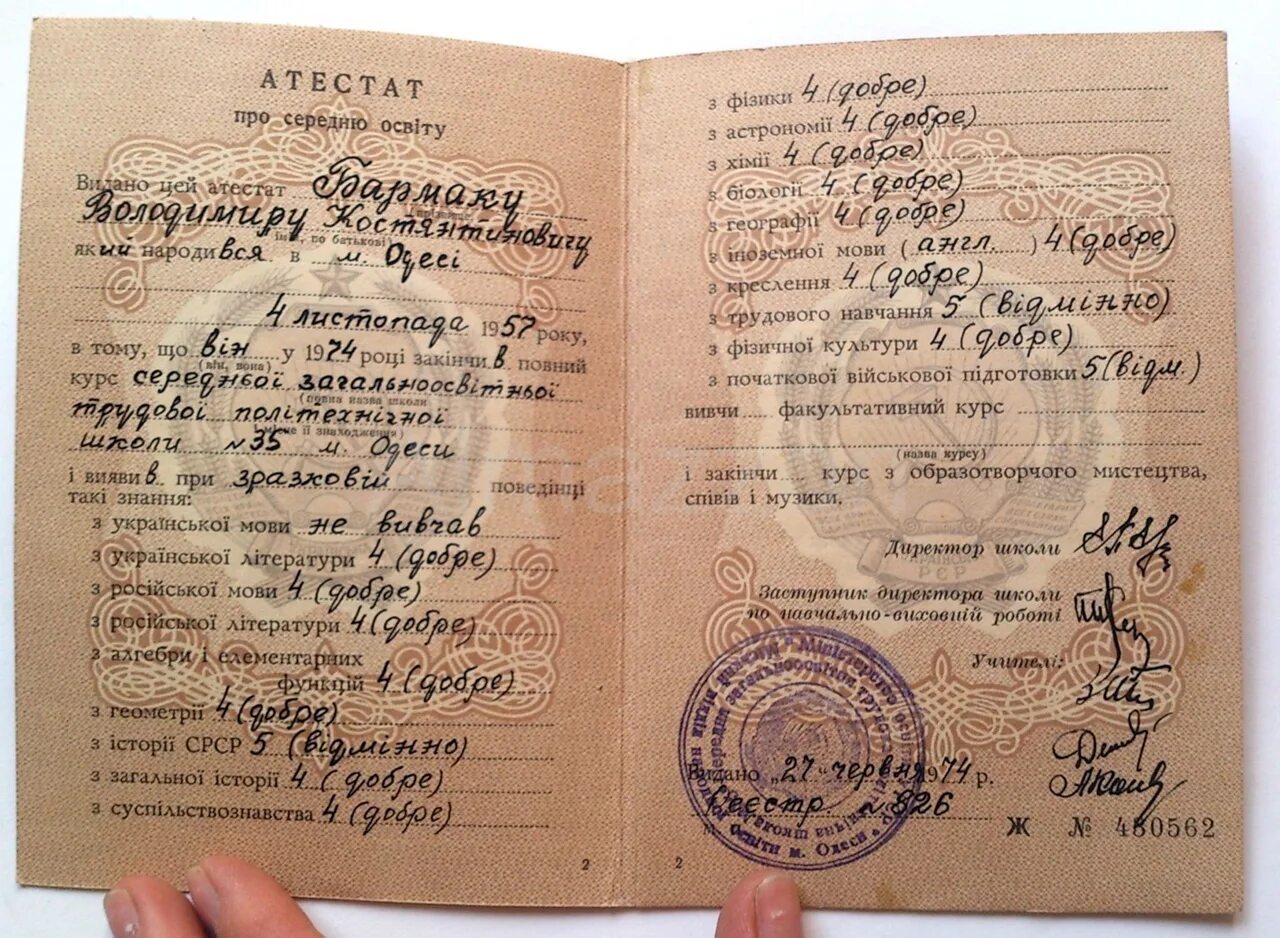 АТЕСТАТ
про середню освіту
Видано цей атестат Бармаку
(прізвище,
Володимиру Костянтиновичу
ім'я, по батькові)
який народився в м. Одесі
4 листопада 1957 року,
в тому, що він у 1974 році закінчив повний
(він, вона)
курс середньої загальноосвітньої
(повна назва школи
трудової політехнічної
і місце її знаходження)
школи №35 м. Одеси
і виявив при зразковій поведінці
такі знання:
з української мови не вивчав
з української літератури 4 (добре)
з російської мови 4 (добре)
з російської літератури 4 (добре)
з алгебри і елементарних
функцій 4 (добре)
з геометрії 4 (добре)
з історії СРСР 5 (відмінно)
з загальної історії 4 (добре)
з суспільствознавства 4 (добре)
2
з фізики 4 (добре)
з астрономії 4 (добре)
з хімії 4 (добре)
з біології 4 (добре)
з географії 4 (добре)
з іноземної мови (англ.) 4 (добре)
з креслення 4 (добре)
з трудового навчання 5 (відмінно)
з фізичної культури 4 (добре)
з початкової військової підготовки 5 (відм.)
вивчи факультативний курс
(назва курсу)
і закінчи курс з образотворчого мистецтва,
співів і музики.
Директор школи
Заступник директора школи
по навчально-виховній роботі
Учителі:
Видано „27“ червня 1974 р.
Реєстр №826
Ж № 480562
2